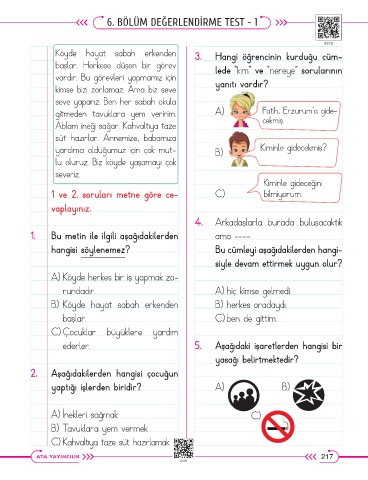 6. BÖLÜM DEĞERLENDİRME TEST - 1
Köyde hayat sabah erkenden
başlar. Herkese düşen bir görev
vardır. Bu görevleri yapmamız için
kimse bizi zorlamaz. Ama biz seve
seve yaparız. Ben her sabah okula
gitmeden tavuklara yem veririm.
Ablam ineği sağar. Kahvaltıya taze
süt hazırlar. Annemize, babamıza
yardımcı olduğumuz için çok mut-
lu oluruz. Biz köyde yaşamayı çok
severiz.
1 ve 2. soruları metne göre ce-
vaplayınız.
1. Bu metin ile ilgili aşağıdakilerden
hangisi söylenemez?
A) Köyde herkes bir iş yapmak zo-
rundadır.
B) Köyde hayat sabah erkenden
başlar.
C) Çocuklar büyüklere yardım
ederler.
2. Aşağıdakilerden hangisi çocuğun
yaptığı işlerden biridir?
A) İnekleri sağmak
B) Tavuklara yem vermek
C) Kahvaltıya taze süt hazırlamak
3. Hangi öğrencinin kurduğu cüm-
lede "kim" ve "nereye" sorularının
yanıtı vardır?
A) Fatih, Erzurum'a gide-
cekmiş.
B) Kiminle gidecekmiş?
Kiminle gideceğini
C) bilmiyorum.
4. Arkadaşlarla burada buluşacaktık
ama ----
Bu cümleyi aşağıdakilerden hangi-
siyle devam ettirmek uygun olur?
A) hiç kimse gelmedi.
B) herkes aradaydı.
C) ben de gittim.
5. Aşağıdaki işaretlerden hangisi bir
yasağı belirtmektedir?
A) B)
C)
ATA YAYINCILIK
217